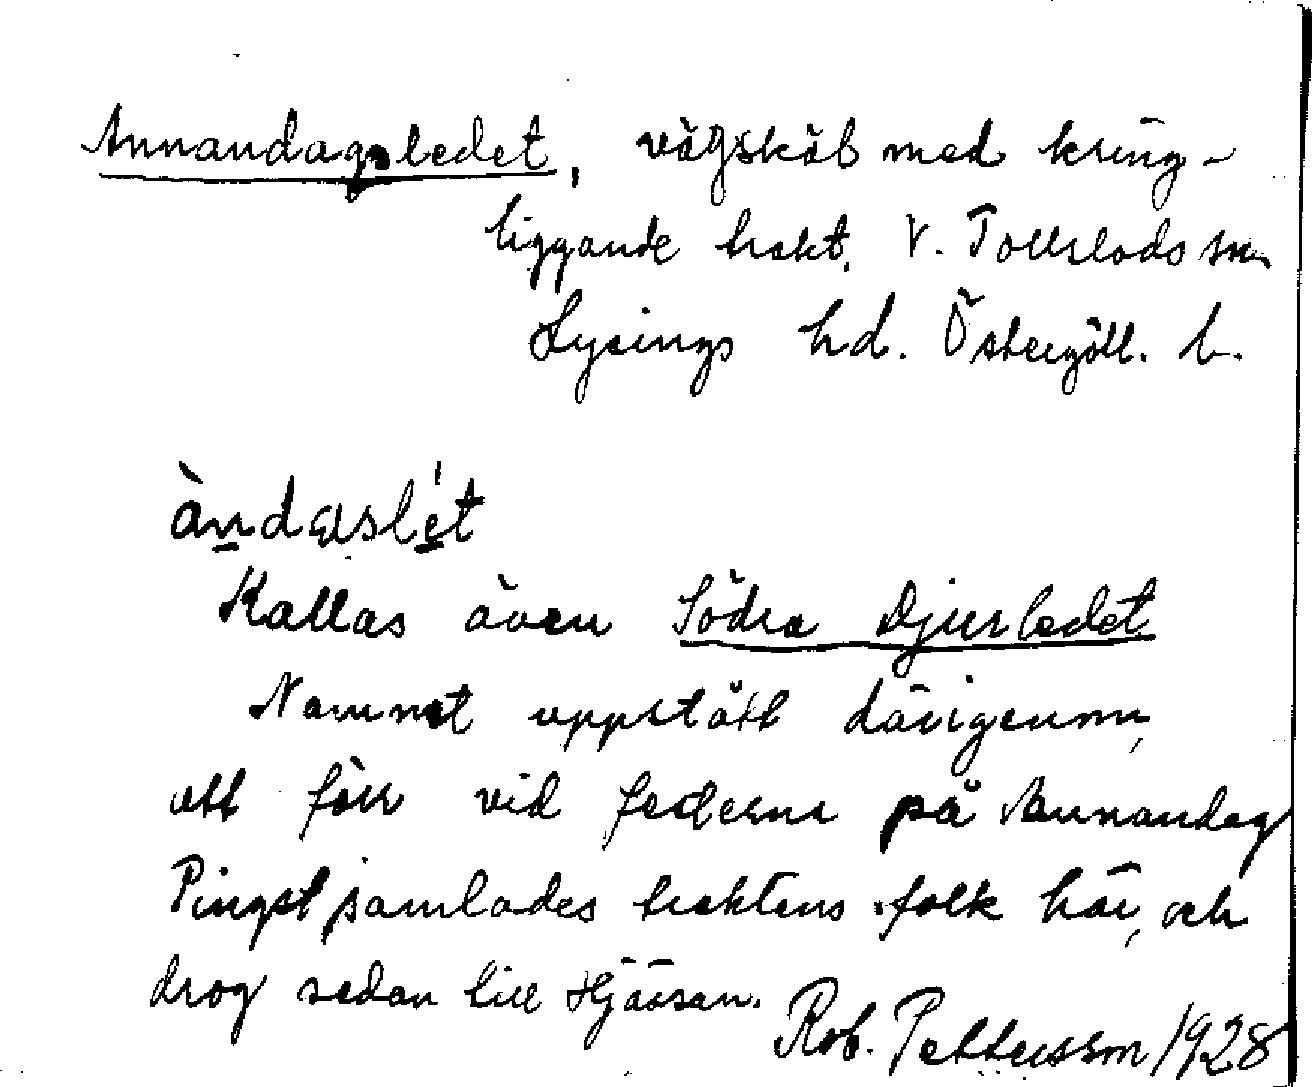 Annandagsledet, vägskäl med kring-
liggande trakt, V. Tollstads sn
Lysings hd. Östergötl. l.
àndasle̍t
Kallas även Södra Djurledet
Namnet uppstått därigenom,
att förr vid festerna på Annandag
Pingst samlades traktens folk här, och
drog sedan till Hjässan.
Rob. Pettersson 1928